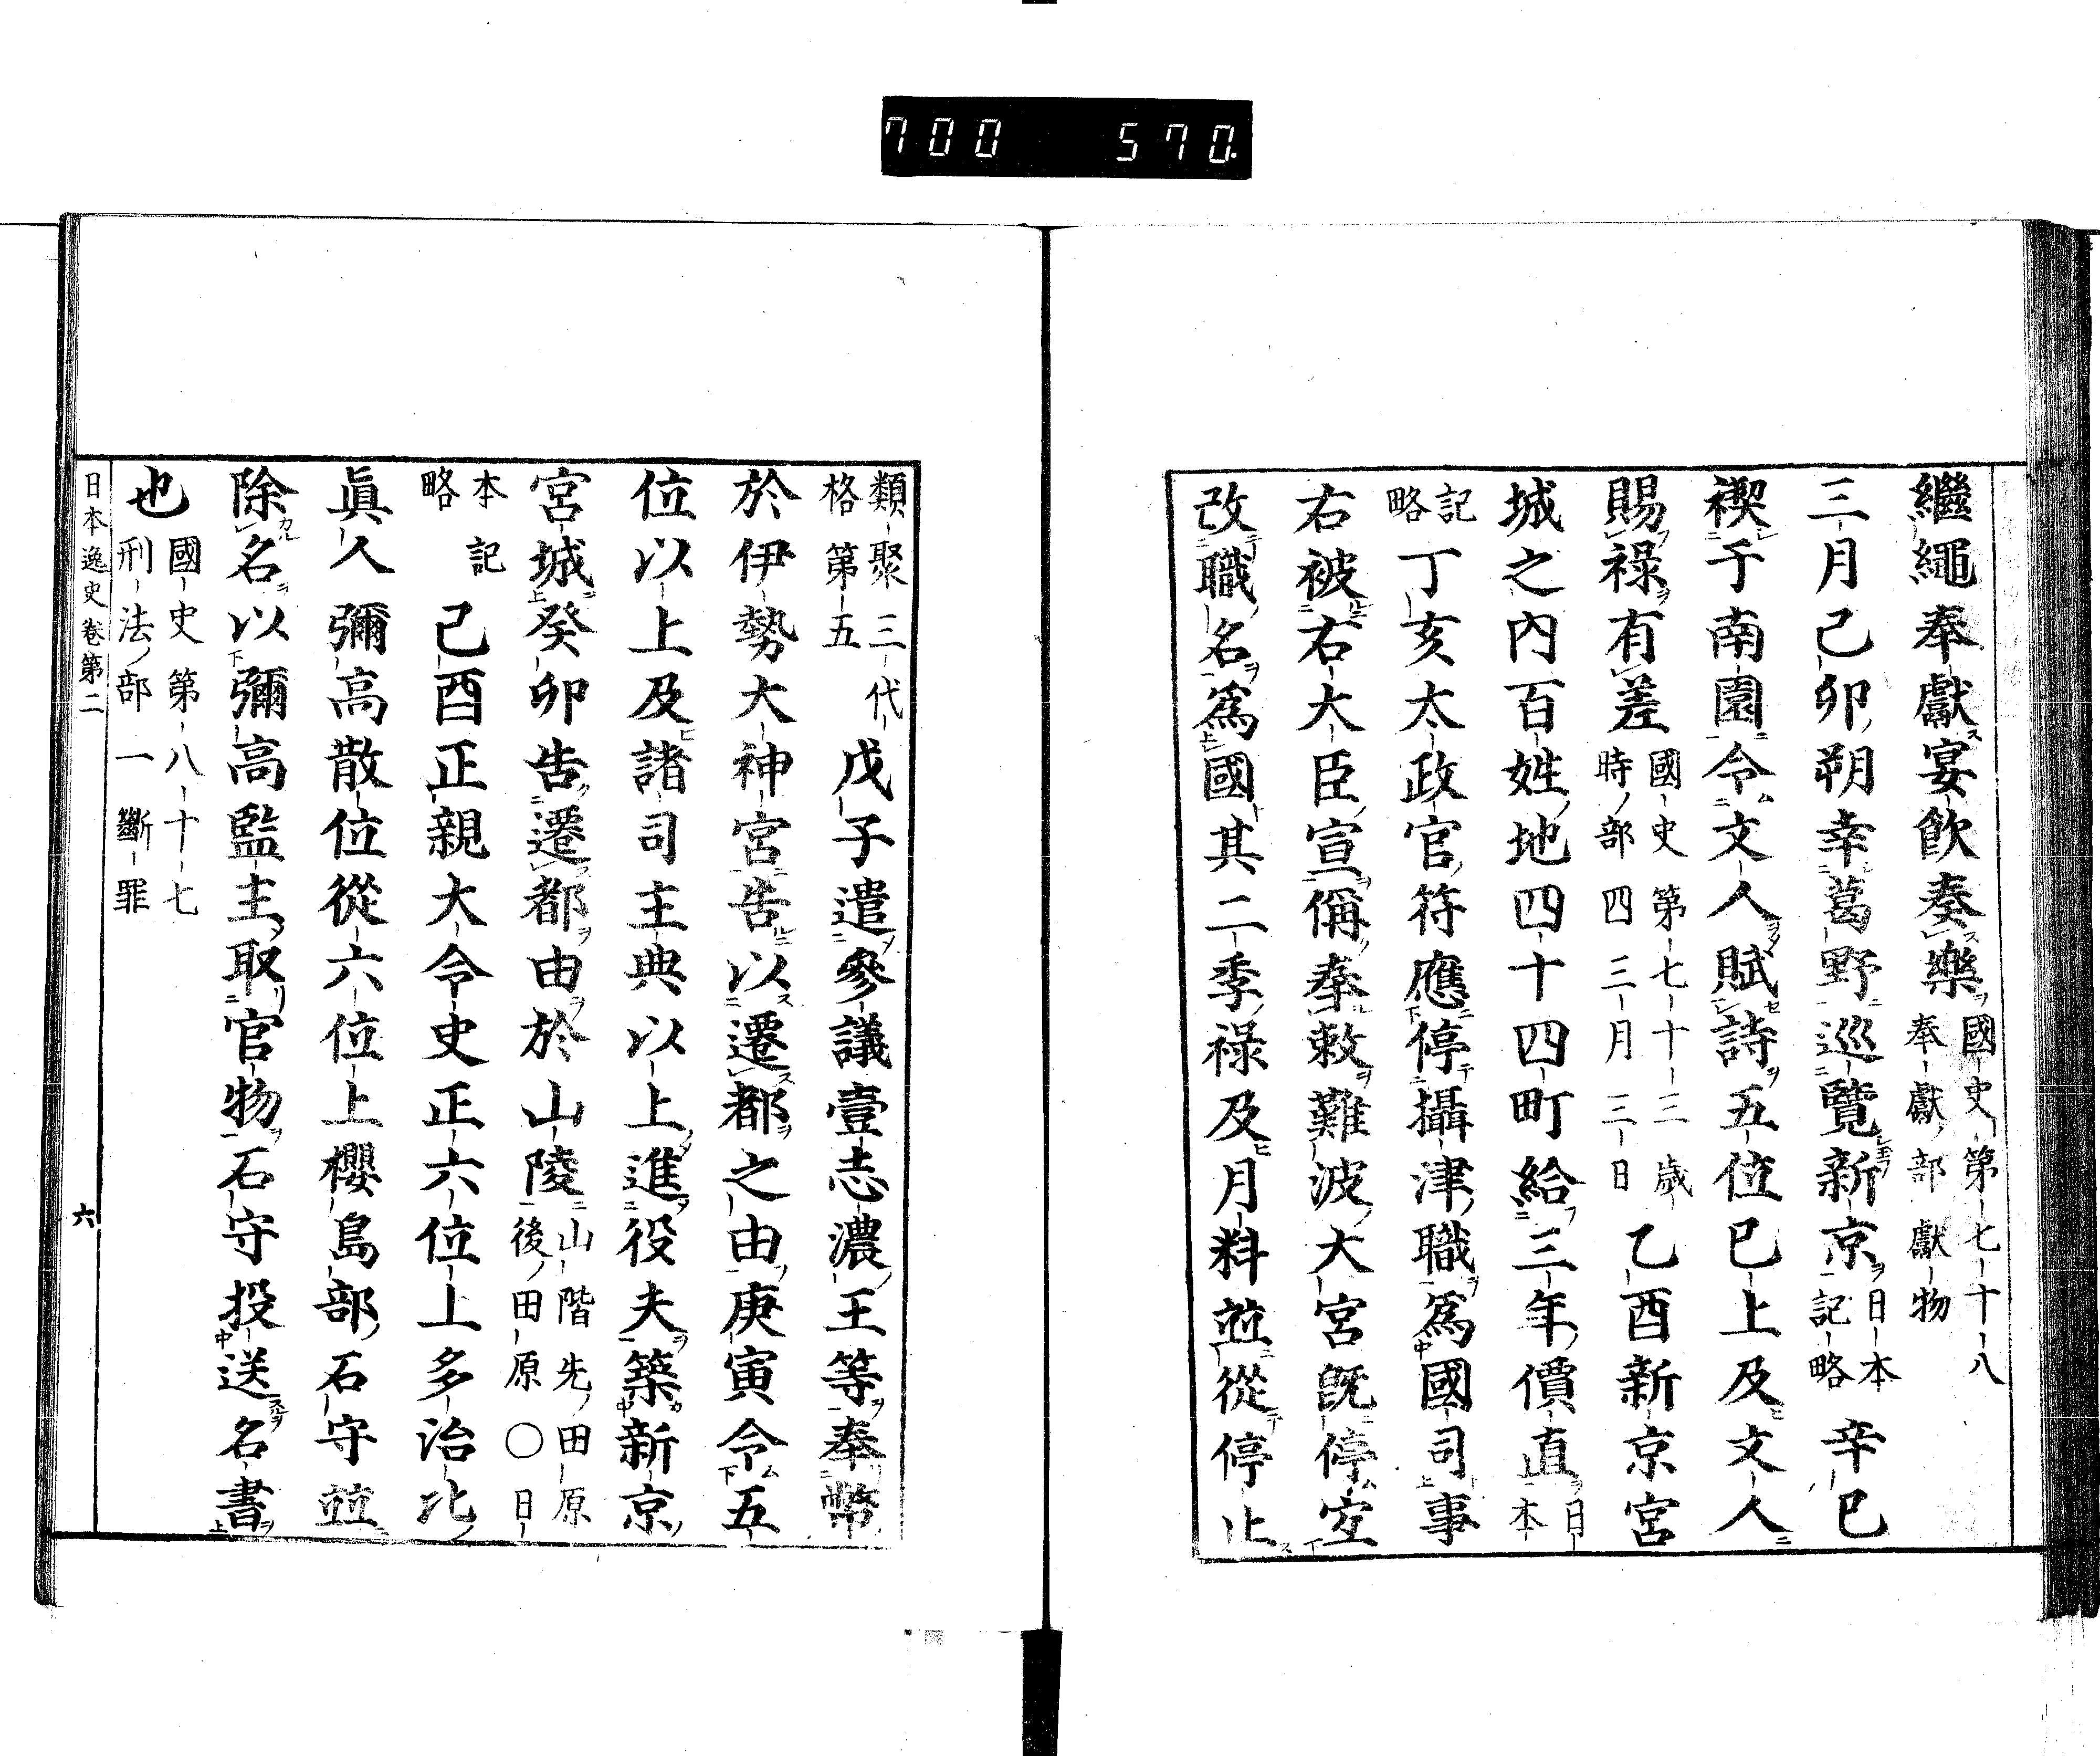 700 570.
繼繩奉獻宴飲奏樂國史第七十八奉獻部獻物
三月己卯朔幸葛野巡覽新京日本記略辛巳
禊于南園令文人賦詩五位已上及文人
賜祿有差國史第七十三歲時部四三月三日乙酉新京宮
城之內百姓地四十四町給三年價直日本
記略丁亥太政官符應停攝津職爲國司事
右被右大臣宣偁奉敕難波大宮既停宜
改職名爲國其二季祿及月料並從停止
類聚三代格第五戊子遣參議壹志濃王等奉幣
於伊勢大神宮告以遷都之由庚寅令五
位以上及諸司主典以上進役夫築新京
宮城癸卯告遷都由於山陵山階先田原後田原○日
本記略己酉正親大令史正六位上多治比
眞人彌高散位從六位上櫻島部石守並
除名以彌高監主取官物石守投送名書
也國史第八十七刑法部一斷罪
日本逸史卷第二 六